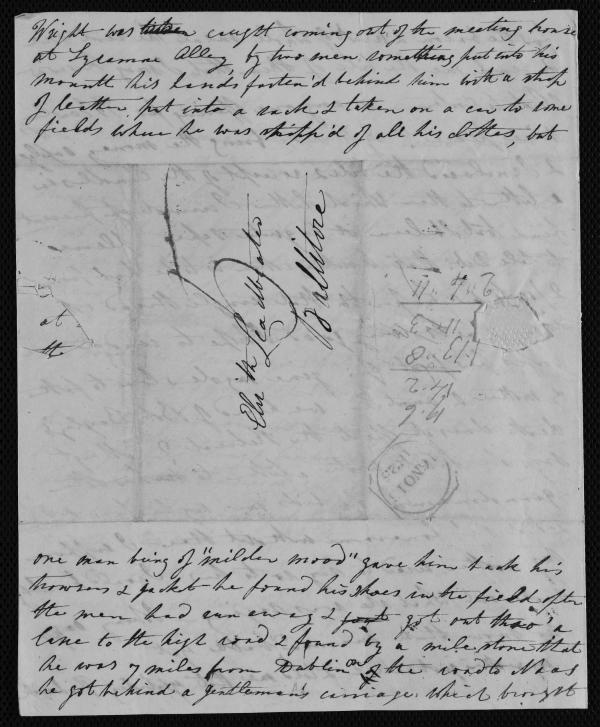 Wright was taken caught coming out of the meeting house
at Sycamore Alley by two men something put into his
mouth his hands fasten'd behind him with a strap
of leather put into a sack & taken on a car to some
fields where he was stripp'd of all his clothes, but
Eliz'th Leadbeater
Ballitore
at
the
2 " 4 " 11
11 " 3
1 " 13 " 8
14 " 2
4 " 6
16 NO 16
1828
one man being of "milder mood" gave him back his
trowsers & jacket he found his shoes in the field after
the men had run away & got out thro' a
lane to the high road & found by a mile stone that
he was 7 miles from Dublin on the road to Naas
he got behind a gentleman's carriage which brought